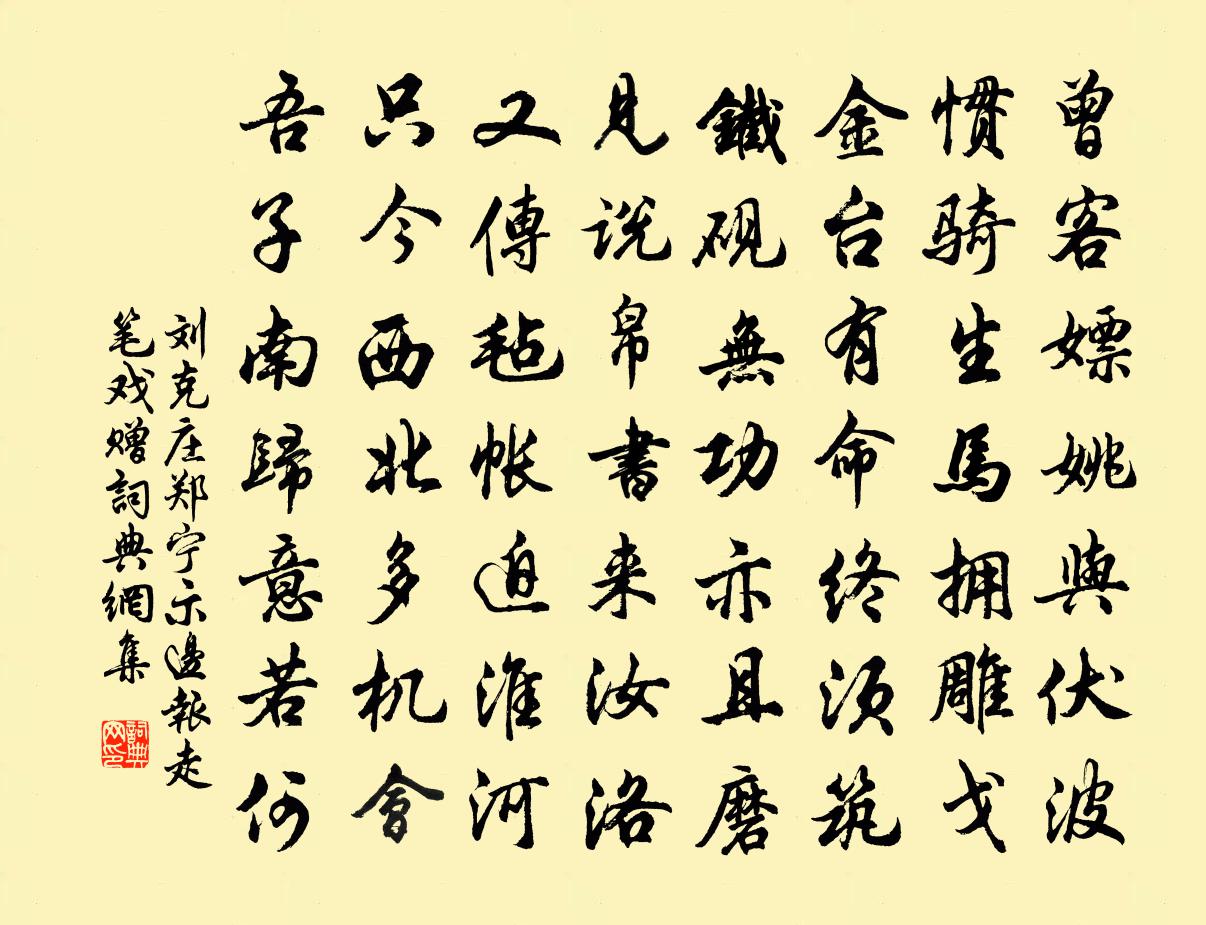 曾客嫖姚與伏波
慣骑生馬拥雕戈
金台有命终须筑
鐵砚無功亦且磨
見说帛書来汝洛
又傳毡帐迫淮河
只今西北多机會
吾子南歸意若何
刘克庄郑宁示邊報走
笔戏赠詞典網集
詞典
网印